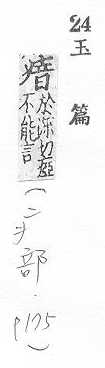 24
玉篇
瘖
於深切瘂
不能言
(疒部.
p175)